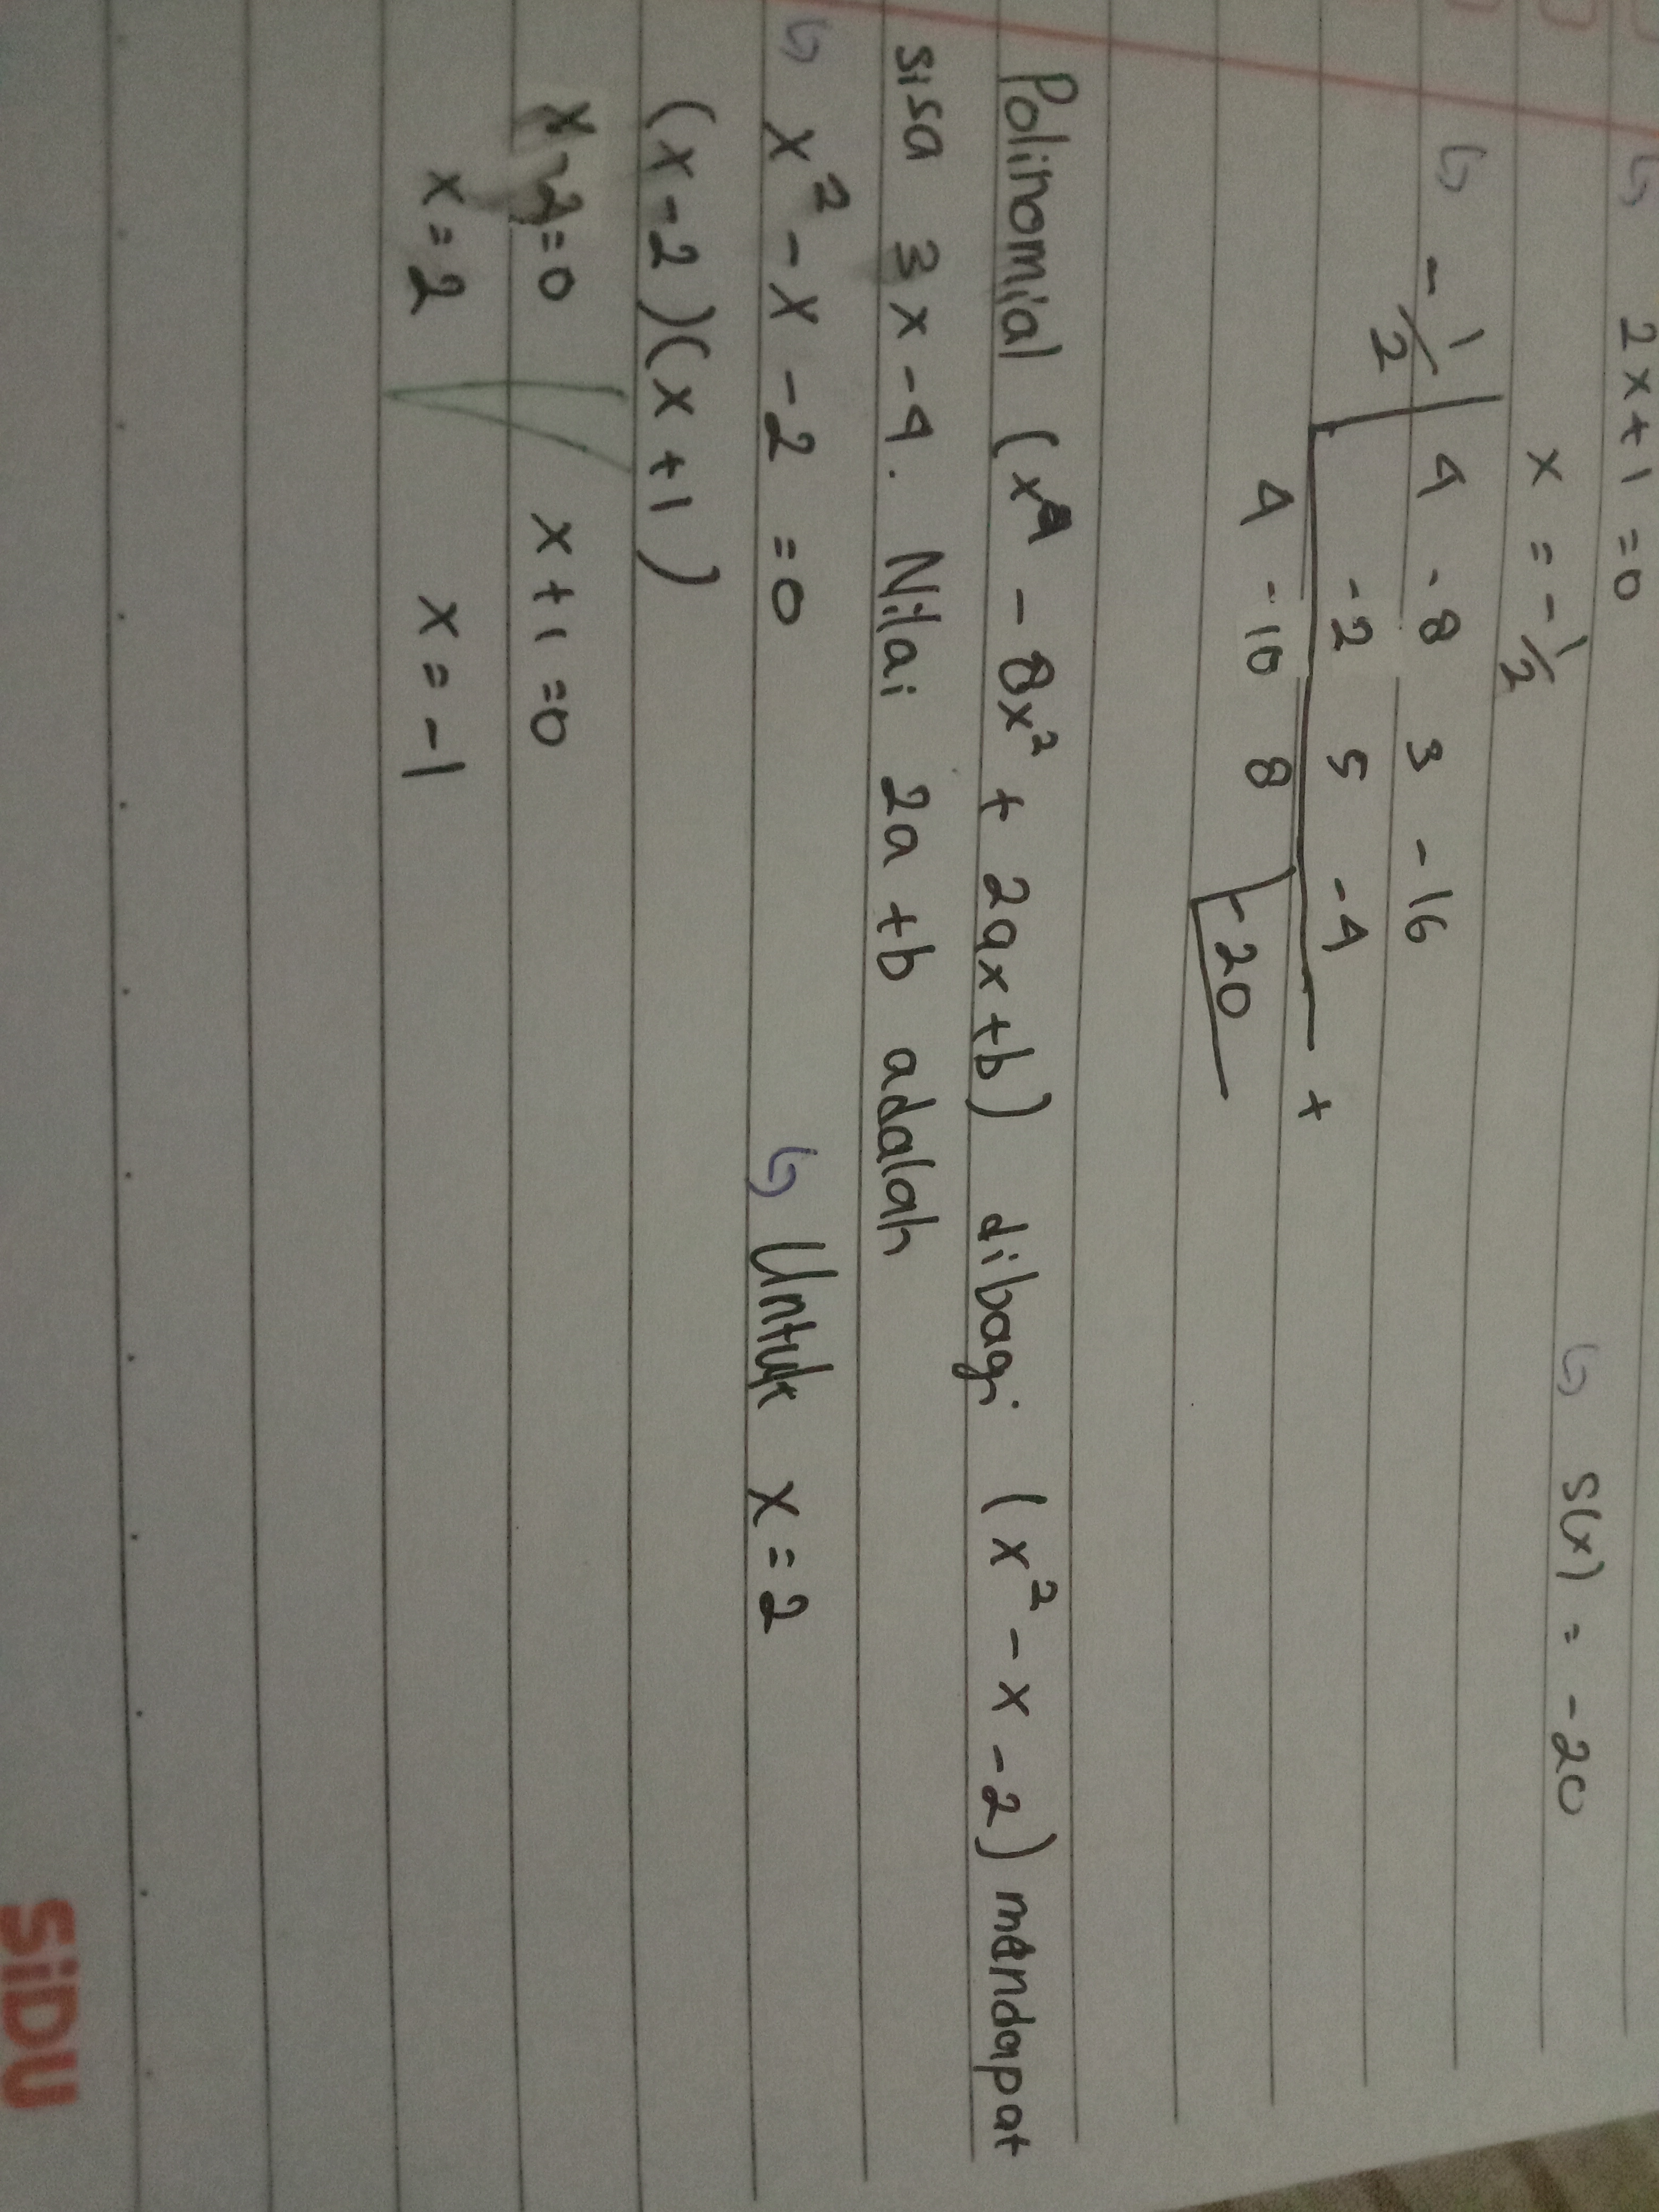 ↳ 2x + 1 = 0
x = - 1/2
↳ S(x) = -20
↳ - 1/2 | 4 -8 3 -16
-2 5 -4 +
4 -10 8 -20
Polinomial (x⁴ - 8x² + 2ax + b) dibagi (x² - x - 2) mendapat
sisa 3x - 4. Nilai 2a + b adalah
↳ x² - x - 2 = 0 ↳ Untuk x = 2
(x - 2)(x + 1)
x - 2 = 0 x + 1 = 0
x = 2 x = -1
SiDU